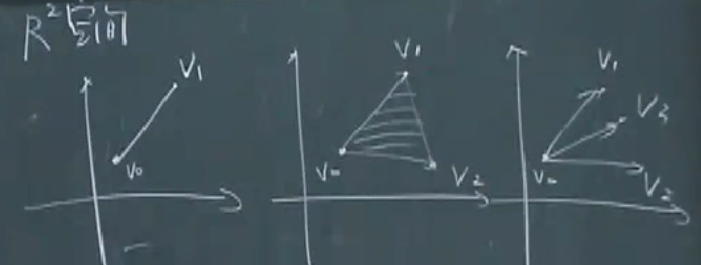 R² 空间
V₁
V₀
V₁
V₀
V₂
V₁
V₃
V₀
V₂